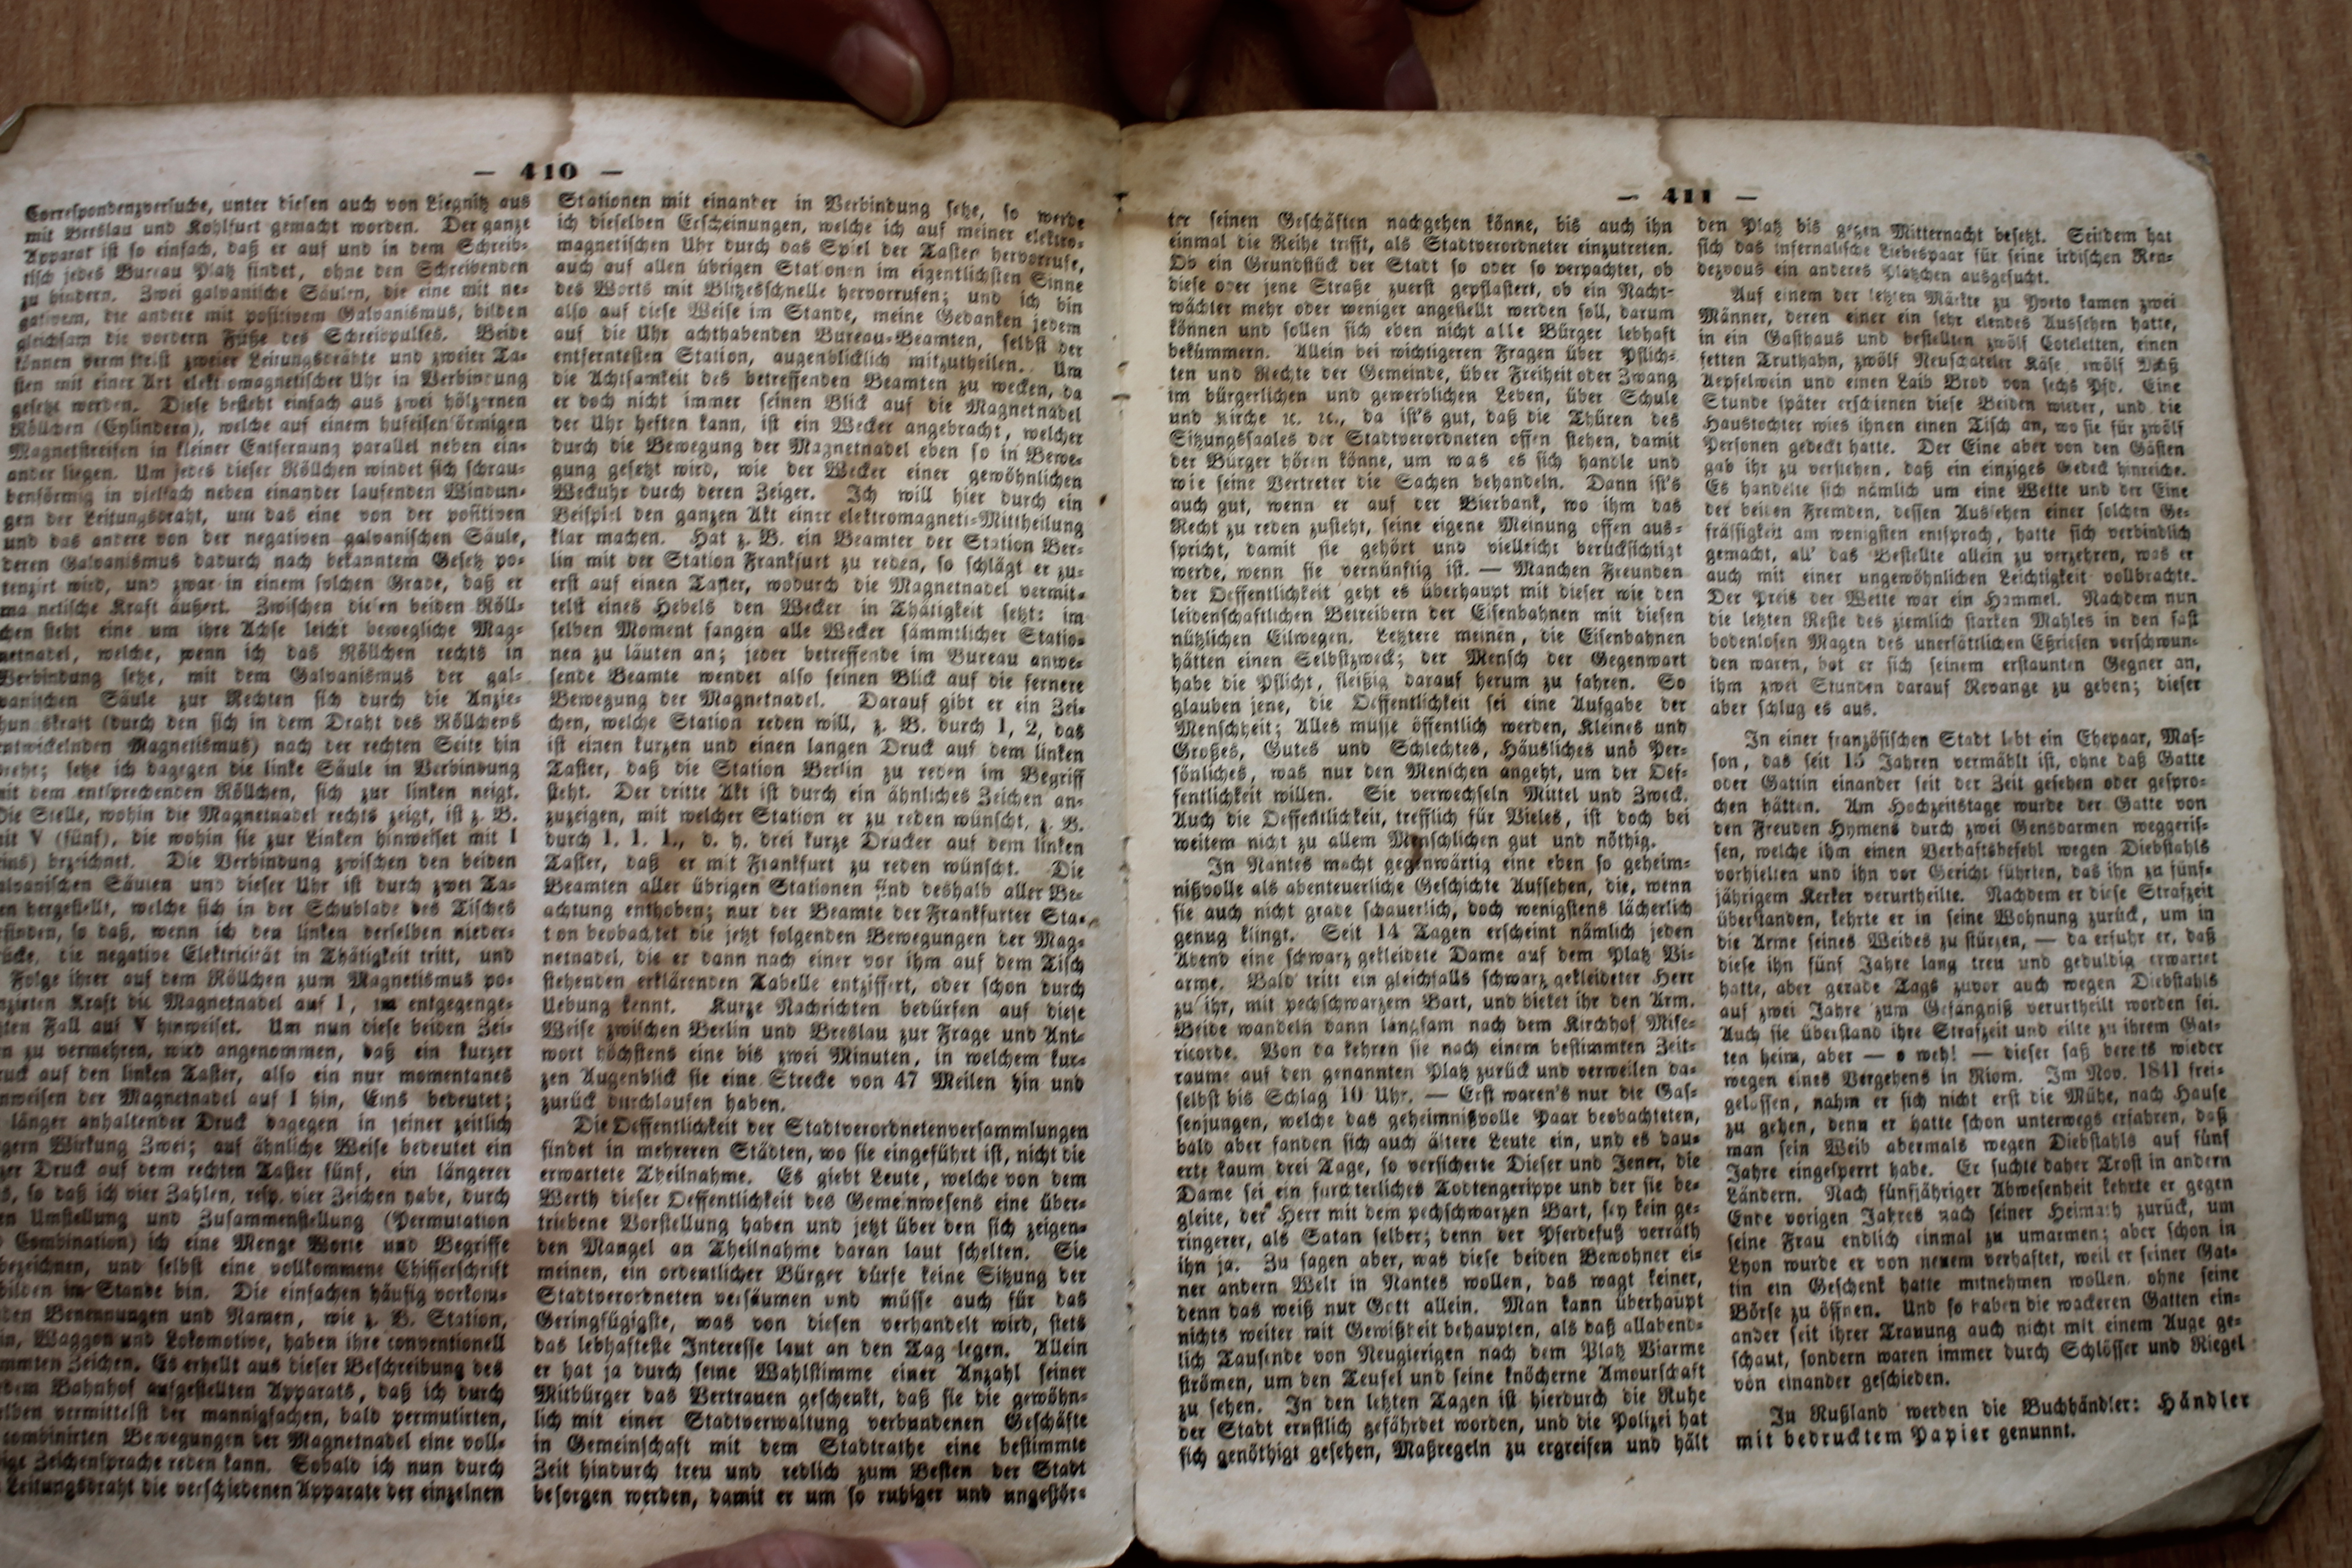 — 410 —
Correspondenzversuche, unter diesen auch von Liegnitz aus
mit Breslau und Kohlfurt gemacht worden. Der ganze
Apparat ist so einfach, daß er auf und in dem Schreib-
tisch jedes Bureau Platz findet, ohne den Schreibenden
zu hindern. Zwei galvanische Säulen, die eine mit ne-
gativem, die andere mit positivem Galvanismus, bilden
gleichsam die vordern Füße des Schreibpultes. Beide
können vermittelst zweier Leitungsdrähte und zweier Ta-
sten mit einer Art elektromagnetischer Uhr in Verbindung
gesetzt werden. Diese besteht einfach aus zwei hölzernen
Röllchen (Cylindern), welche auf einem hufeisenförmigen
Magnetstreifen in kleiner Entfernung parallel neben ein-
ander liegen. Um jedes dieser Röllchen windet sich schrau-
benförmig in vielfach neben einander laufenden Windun-
gen der Leitungsdraht, um das eine von der positiven
und das andere von der negativen galvanischen Säule,
deren Galvanismus dadurch nach bekanntem Gesetz po-
tenzirt wird, und zwar in einem solchen Grade, daß er
magnetische Kraft äußert. Zwischen diesen beiden Röll-
chen steht eine um ihre Achse leicht bewegliche Mag-
netnadel, welche, wenn ich das Röllchen rechts in
Verbindung setze, mit dem Galvanismus der gal-
vanischen Säule zur Rechten sich durch die Anzie-
hungskraft (durch den sich in dem Draht des Röllchens
entwickelnden Magnetismus) nach der rechten Seite hin
dreht; setze ich dagegen die linke Säule in Verbindung
mit dem entsprechenden Röllchen, sich zur linken neigt.
Die Stelle, wohin die Magnetnadel rechts zeigt, ist z. B.
mit V (fünf), die wohin sie zur Linken hinweiset mit I
(eins) bezeichnet. Die Verbindung zwischen den beiden
galvanischen Säulen und dieser Uhr ist durch zwei Ta-
sten hergestellt, welche sich in der Schublade des Tisches
befinden, so daß, wenn ich den linken derselben nieder-
drücke, die negative Elektricität in Thätigkeit tritt, und
Folge ihrer auf dem Röllchen zum Magnetismus po-
tenzirten Kraft die Magnetnadel auf I, im entgegenge-
setzten Fall auf V hinweiset. Um nun diese beiden Zei-
chen zu vermehren, wird angenommen, daß ein kurzer
Druck auf den linken Taster, also ein nur momentanes
Hinweisen der Magnetnadel auf I hin, Eins bedeutet;
länger anhaltender Druck dagegen in seiner zeitlich
längern Wirkung Zwei; auf ähnliche Weise bedeutet ein
kurzer Druck auf dem rechten Taster fünf, ein längerer
so daß ich vier Zahlen, resp. vier Zeichen habe, durch
deren Umstellung und Zusammenstellung (Permutation
Combination) ich eine Menge Worte und Begriffe
bezeichnen, und selbst eine vollkommene Chifferschrift
bilden im Stande bin. Die einfachen häufig vorkom-
menden Benennungen und Namen, wie z. B. Station,
Waggon und Lokomotive, haben ihre conventionell
bestimmten Zeichen. Es erhellt aus dieser Beschreibung des
dem Bahnhof aufgestellten Apparats, daß ich durch
vermittelst der mannigfachen, bald permutirten,
combinirten Bewegungen der Magnetnadel eine voll-
Zeichensprache reden kann. Sobald ich nun durch
Leitungsdraht die verschiedenen Apparate der einzelnen
Stationen mit einander in Verbindung setze, so werde
ich dieselben Erscheinungen, welche ich auf meiner elektro-
magnetischen Uhr durch das Spiel der Taster hervorrufe,
auch auf allen übrigen Stationen im eigentlichsten Sinne
des Worts mit Blitzesschnelle hervorrufen; und ich bin
also auf diese Weise im Stande, meine Gedanken jedem
auf die Uhr achthabenden Bureau-Beamten, selbst der
entferntesten Station, augenblicklich mitzutheilen. Um
die Achtsamkeit des betreffenden Beamten zu wecken, da
er doch nicht immer seinen Blick auf die Magnetnadel
der Uhr heften kann, ist ein Wecker angebracht, welcher
durch die Bewegung der Magnetnadel eben so in Bewe-
gung gesetzt wird, wie der Wecker einer gewöhnlichen
Weckuhr durch deren Zeiger. Ich will hier durch ein
Beispiel den ganzen Akt einer elektromagneti-Mittheilung
klar machen. Hat z. B. ein Beamter der Station Ber-
lin mit der Station Frankfurt zu reden, so schlägt er zu-
erst auf einen Taster, wodurch die Magnetnadel vermit-
telst eines Hebels den Wecker in Thätigkeit setzt: im
selben Moment fangen alle Wecker sämmtlicher Statio-
nen zu läuten an; jeder betreffende im Bureau anwe-
sende Beamte wendet also seinen Blick auf die fernere
Bewegung der Magnetnadel. Darauf gibt er ein Zei-
chen, welche Station reden will, z. B. durch 1, 2, das
ist einen kurzen und einen langen Druck auf dem linken
Taster, daß die Station Berlin zu reden im Begriff
steht. Der dritte Akt ist durch ein ähnliches Zeichen an-
zuzeigen, mit welcher Station er zu reden wünscht, z. B.
durch 1. 1. 1., d. h. drei kurze Drucker auf dem linken
Taster, daß er mit Frankfurt zu reden wünscht. Die
Beamten aller übrigen Stationen sind deshalb aller Be-
achtung enthoben; nur der Beamte der Frankfurter Sta-
tion beobachtet die jetzt folgenden Bewegungen der Mag-
netnadel, die er dann nach einer vor ihm auf dem Tisch
stehenden erklärenden Tabelle entziffert, oder schon durch
Uebung kennt. Kurze Nachrichten bedürfen auf diese
Weise zwischen Berlin und Breslau zur Frage und Ant-
wort höchstens eine bis zwei Minuten, in welchem kur-
zen Augenblick sie eine Strecke von 47 Meilen hin und
zurück durchlaufen haben.
Die Oeffentlichkeit der Stadtverordnetenversammlungen
findet in mehreren Städten, wo sie eingeführt ist, nicht die
erwartete Theilnahme. Es giebt Leute, welche von dem
Werth dieser Oeffentlichkeit des Gemeinwesens eine über-
triebene Vorstellung haben und jetzt über den sich zeigen-
den Mangel an Theilnahme daran laut schelten. Sie
meinen, ein ordentlicher Bürger dürfe keine Sitzung der
Stadtverordneten versäumen und müsse auch für das
Geringfügigste, was von diesen verhandelt wird, stets
das lebhafteste Interesse laut an den Tag legen. Allein
er hat ja durch seine Wahlstimme einer Anzahl seiner
Mitbürger das Vertrauen geschenkt, daß sie die gewöhn-
lich mit einer Stadtverwaltung verbundenen Geschäfte
in Gemeinschaft mit dem Stadtrathe eine bestimmte
Zeit hindurch treu und redlich zum Besten der Stadt
besorgen werden, damit er um so ruhiger und ungestör-
— 411 —
ter seinen Geschäften nachgehen könne, bis auch ihn
einmal die Reihe trifft, als Stadtverordneter einzutreten.
Ob ein Grundstück der Stadt so oder so verpachtet, ob
diese oder jene Straße zuerst gepflastert, ob ein Nacht-
wächter mehr oder weniger angestellt werden soll, darum
können und sollen sich eben nicht alle Bürger lebhaft
bekümmern. Allein bei wichtigeren Fragen über Pflich-
ten und Rechte der Gemeinde, über Freiheit oder Zwang
im bürgerlichen und gewerblichen Leben, über Schule
und Kirche ꝛc. ꝛc., da ist's gut, daß die Thüren des
Sitzungssaales der Stadtverordneten offen stehen, damit
der Bürger hören könne, um was es sich handle und
wie seine Vertreter die Sachen behandeln. Dann ist's
auch gut, wenn er auf der Bierbank, wo ihm das
Recht zu reden zusteht, seine eigene Meinung offen aus-
spricht, damit sie gehört und vielleicht berücksichtigt
werde, wenn sie vernünftig ist. — Manchen Freunden
der Oeffentlichkeit geht es überhaupt mit dieser wie den
leidenschaftlichen Betreibern der Eisenbahnen mit diesen
nützlichen Eilwegen. Letztere meinen, die Eisenbahnen
hätten einen Selbstzweck; der Mensch der Gegenwart
habe die Pflicht, fleißig darauf herum zu fahren. So
glauben jene, die Oeffentlichkeit sei eine Aufgabe der
Menschheit; Alles müsse öffentlich werden, Kleines und
Großes, Gutes und Schlechtes, Häusliches und Per-
sönliches, was nur den Menschen angeht, um der Oef-
fentlichkeit willen. Sie verwechseln Mittel und Zweck.
Auch die Oeffentlichkeit, trefflich für Vieles, ist doch bei
weitem nicht zu allem Menschlichen gut und nöthig.
In Nantes macht gegenwärtig eine eben so geheim-
nißvolle als abenteuerliche Geschichte Aufsehen, die, wenn
sie auch nicht grade schauerlich, doch wenigstens lächerlich
genug klingt. Seit 14 Tagen erscheint nämlich jeden
Abend eine schwarz gekleidete Dame auf dem Platz Vi-
arme. Bald tritt ein gleichfalls schwarz gekleideter Herr
zu ihr, mit pechschwarzem Bart, und bietet ihr den Arm.
Beide wandeln dann langsam nach dem Kirchhof Mise-
ricorde. Von da kehren sie nach einem bestimmten Zeit-
raume auf den genannten Platz zurück und verweilen da-
selbst bis Schlag 10 Uhr. — Erst waren's nur die Gas-
senjungen, welche das geheimnißvolle Paar beobachteten,
bald aber fanden sich auch ältere Leute ein, und es dau-
erte kaum drei Tage, so versicherte Dieser und Jener, die
Dame sei ein fürchterliches Todtengerippe und der sie be-
gleite, der Herr mit dem pechschwarzen Bart, sey kein ge-
ringerer, als Satan selber; denn der Pferdefuß verräth
ihn ja. Zu sagen aber, was diese beiden Bewohner ei-
ner andern Welt in Nantes wollen, das wagt keiner,
denn das weiß nur Gott allein. Man kann überhaupt
nichts weiter mit Gewißheit behaupten, als daß allabend-
lich Tausende von Neugierigen nach dem Platz Viarme
strömen, um den Teufel und seine knöcherne Amourschaft
zu sehen. In den letzten Tagen ist hierdurch die Ruhe
der Stadt ernstlich gefährdet worden, und die Polizei hat
sich genöthigt gesehen, Maßregeln zu ergreifen und hält
den Platz bis gegen Mitternacht besetzt. Seitdem hat
sich das infernalische Liebespaar für seine irdischen Ren-
dezvous ein anderes Plätzchen ausgesucht.
Auf einem der letzten Märkte zu Yveto kamen zwei
Männer, deren einer ein sehr elendes Aussehen hatte,
in ein Gasthaus und bestellten zwölf Coteletten, einen
fetten Truthahn, zwölf Neuschateler Käse, zwölf Maß
Aepfelwein und einen Laib Brod von sechs Pfd. Eine
Stunde später erschienen diese Beiden wieder, und die
Haustochter wies ihnen einen Tisch an, wo sie für zwölf
Personen gedeckt hatte. Der Eine aber von den Gästen
gab ihr zu verstehen, daß ein einziges Gedeck hinreiche.
Es handelte sich nämlich um eine Wette und der Eine
der beiden Fremden, dessen Aussehen einer solchen Ge-
fräßigkeit am wenigsten entsprach, hatte sich verbindlich
gemacht, all' das Bestellte allein zu verzehren, was er
auch mit einer ungewöhnlichen Leichtigkeit vollbrachte.
Der Preis der Wette war ein Hammel. Nachdem nun
die letzten Reste des ziemlich starken Mahles in den fast
bodenlosen Magen des unersättlichen Eßriesen verschwun-
den waren, bot er sich seinem erstaunten Gegner an,
ihm zwei Stunden darauf Revange zu geben; dieser
aber schlug es aus.
In einer französischen Stadt lebt ein Ehepaar, Mas-
son, das seit 15 Jahren vermählt ist, ohne daß Gatte
oder Gattin einander seit der Zeit gesehen oder gespro-
chen hätten. Am Hochzeitstage wurde der Gatte von
den Freuden Hymens durch zwei Gensdarmen weggeris-
sen, welche ihm einen Verhaftsbefehl wegen Diebstahls
vorhielten und ihn vor Gericht führten, das ihn zu fünf-
jährigem Kerker verurtheilte. Nachdem er diese Strafzeit
überstanden, kehrte er in seine Wohnung zurück, um in
die Arme seines Weibes zu stürzen, — da erfuhr er, daß
diese ihn fünf Jahre lang treu und geduldig erwartet
hatte, aber gerade Tags zuvor auch wegen Diebstahls
auf zwei Jahre zum Gefängniß verurtheilt worden sei.
Auch sie überstand ihre Strafzeit und eilte zu ihrem Gat-
ten heim, aber — o weh! — dieser saß bereits wieder
wegen eines Vergehens in Riom. Im Nov. 1841 frei-
gelassen, nahm er sich nicht erst die Mühe, nach Hause
zu gehen, denn er hatte schon unterwegs erfahren, daß
man sein Weib abermals wegen Diebstahls auf fünf
Jahre eingesperrt habe. Er suchte daher Trost in andern
Ländern. Nach fünfjähriger Abwesenheit kehrte er gegen
Ende vorigen Jahres nach seiner Heimath zurück, um
seine Frau endlich einmal zu umarmen; aber schon in
Lyon wurde er von neuem verhaftet, weil er seiner Gat-
tin ein Geschenk hatte mitnehmen wollen, ohne seine
Börse zu öffnen. Und so haben die wackeren Gatten ein-
ander seit ihrer Trauung auch nicht mit einem Auge ge-
schaut, sondern waren immer durch Schlösser und Riegel
von einander geschieden.
In Rußland werden die Buchhändler: Händler
mit bedrucktem Papier genannt.